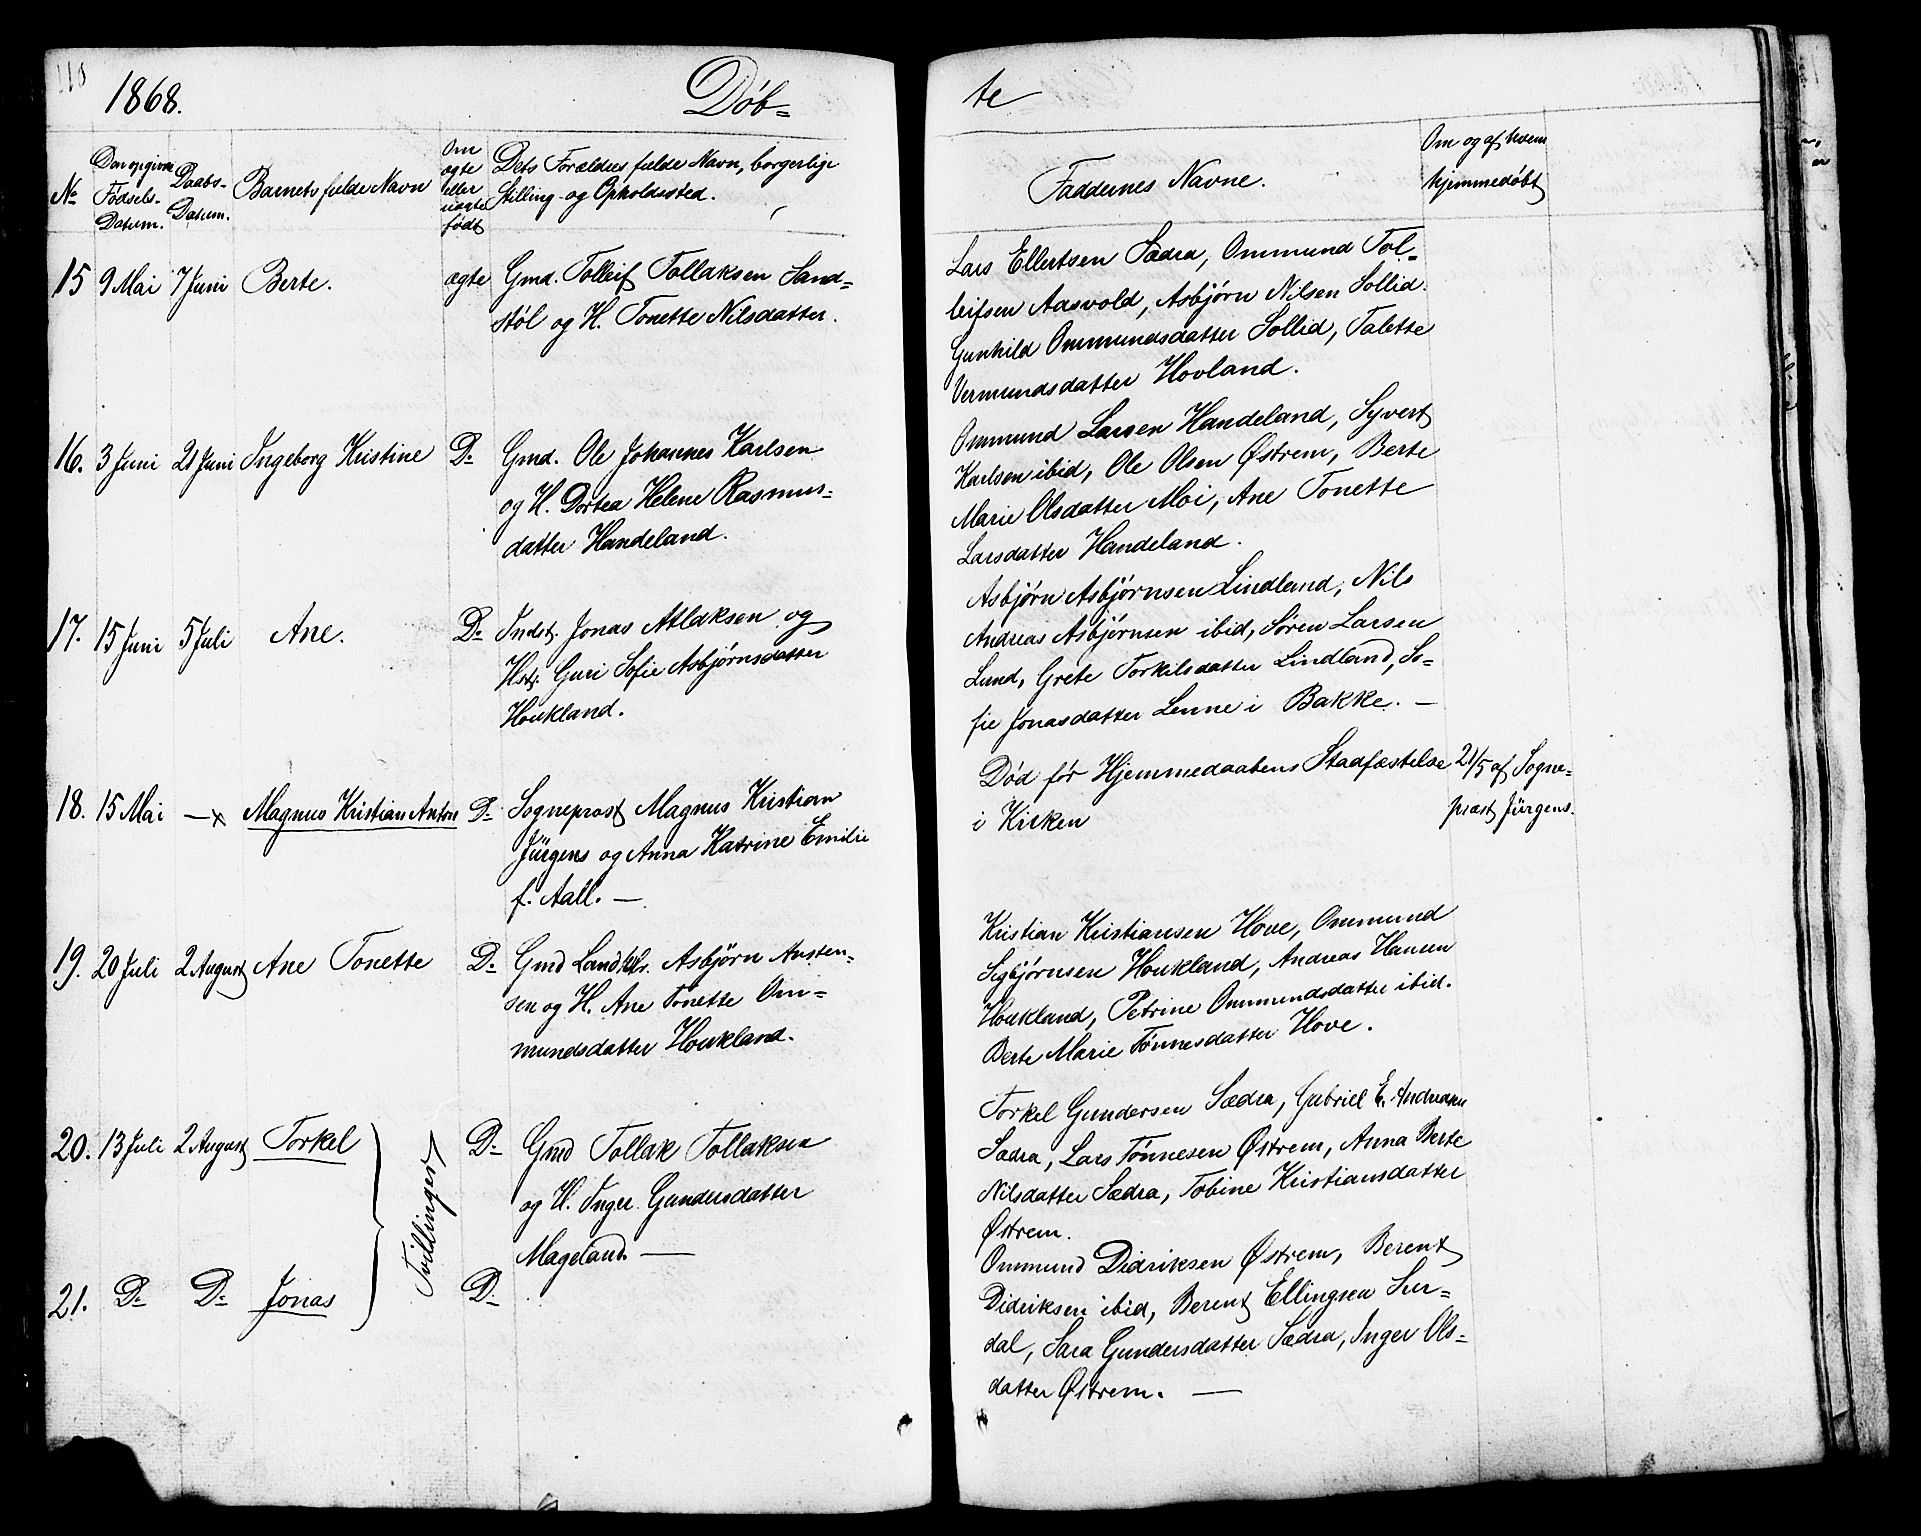 118
1868.
Døb=
te
No
Den opgivne
Fødsels-
Datum.
Daabs-
Datum.
Barnets fulde Navn
Om
ægte
eller
uægte
født
Dets Forældres fulde Navn, borgerlige
Stilling og Opholdssted.
Faddernes Navne.
Om og af hvem
hjemmedøbt
15 9 Mai 7 Juni Berte. ægte
Gmd. Tolleif Tollaksen Sand=
støl og H. Tonette Nilsdatter.
Lars Ellertsen Sædra, Ommund Tol=
leifsen Aasvold, Asbjørn Nilsen Sollid.
Gunhild Ommundsdatter Sollid, Talette
Vermundsdatter Hovland.
16. 3 Juni 21 Juni Ingeborg Kristine Do
Gmd. Ole Johannes Karlsen
og H. Dortea Helene Rasmus=
datter Handeland.
Ommund Larsen Handeland, Syvert
Karlsen ibid, Ole Olsen Østrem, Berte
Marie Olsdatter Moi, Ane Tonette
Larsdatter Handeland.
17. 15 Juni 5 Juli Ane. Do
Indst. Jonas Atlaksen og
Hst. Guri Sofie Asbjørnsdatter
Houkland.
Asbjørn Asbjørnsen Lindland, Nils
Andreas Asbjørnsen ibid, Søren Larsen
Lund, Grete Torkilsdatter Lindland, So=
fie Jonasdatter Lenne i Bakke. —
18. 15 Mai — x Magnus Kristian Anton Do
Sogneprest Magnus Kristian
Jürgens og Anna Katrine Emilie
f. Aall. —
Død før Hjemmedaabens Stadfæstelse
i Kirken
21/5 af Sogne=
præst Jürgens.
19. 20 Juli 2 August Ane Tonette Do
Gmd Landhdlr. Asbjørn Austen=
sen og H. Ane Tonette Om=
mundsdatter Houkland.
Kristian Kristiansen Hove, Ommund
Sigbjørnsen Houkland, Andreas Hansen
Houkland, Petrine Ommundsdatter ibid.
Berte Marie Tønnesdatter Hove.
20. 13 Juli 2 August Torkel Do
Tvillinger
Gmd Tollak Tollaksen
og H. Inger Gundersdatter
Mageland. —
Torkel Gundersen Sædra, Gabriel E. Andreasen
Sædra, Lars Tønnesen Østrem, Anna Berte
Nilsdatter Sædra, Tobine Kristiansdatter
Østrem.
21. Do Do Jonas Do
Ommund Didriksen Østrem, Berent
Didriksen ibid, Berent Ellingsen Sur=
dal, Sara Gundersdatter Sædra, Inger Ols=
datter Østrem. —